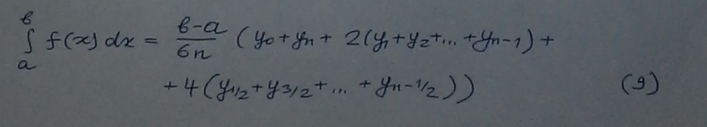 ∫_a^b f(x) dx = \frac{b-a}{6n} (y_0 + y_n + 2(y_1 + y_2 + ... + y_{n-1}) +
+ 4(y_{1/2} + y_{3/2} + ... + y_{n-1/2})) (9)